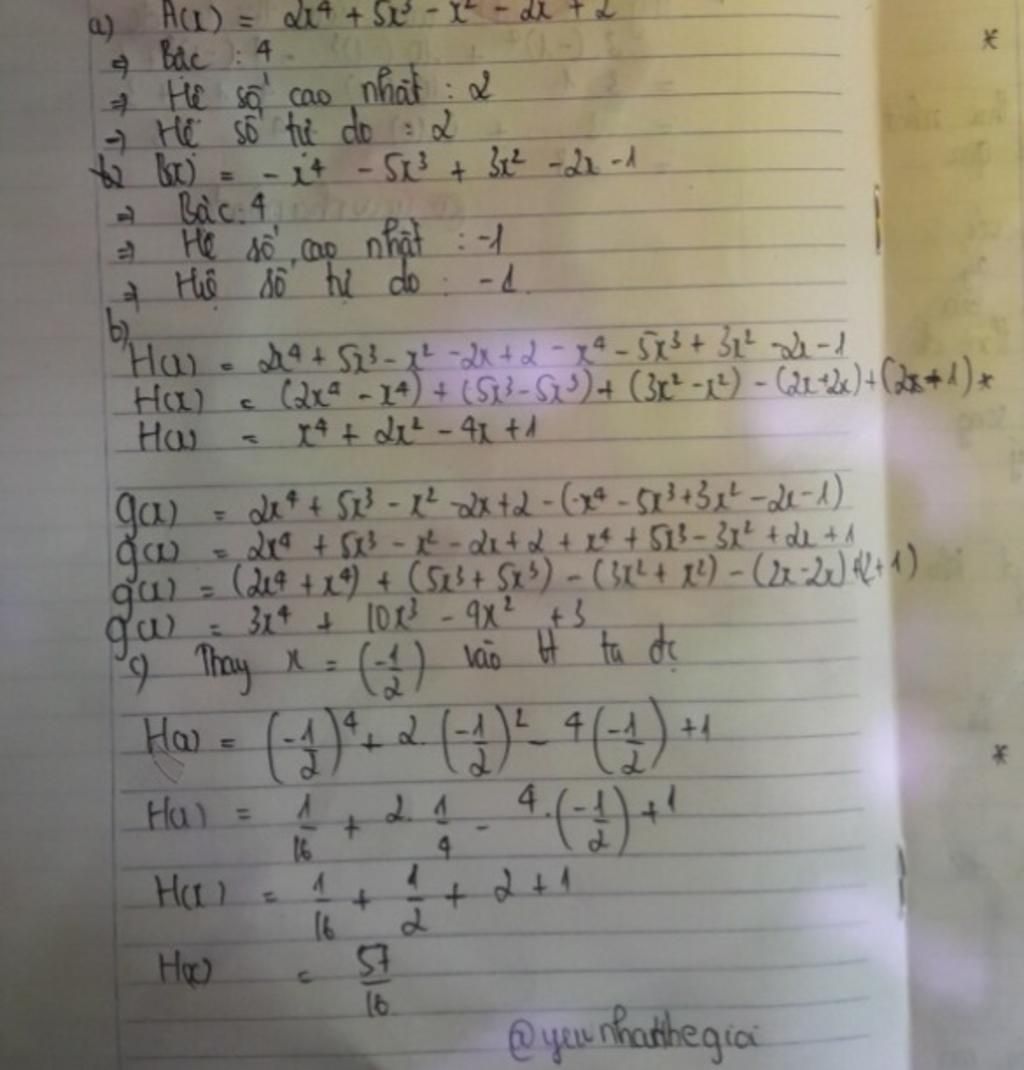 a) A(x) = 2x⁴ + 5x³ - x² - 2x + 2
⇒ Bậc : 4
⇒ Hệ số cao nhất : 2
⇒ Hệ số tự do : 2
b) B(x) = - x⁴ - 5x³ + 3x² - 2x - 1
⇒ Bậc : 4
⇒ Hệ số cao nhất : -1
⇒ Hệ số tự do : -1
b)
H(x) = 2x⁴ + 5x³ - x² - 2x + 2 - x⁴ - 5x³ + 3x² - 2x - 1
H(x) = (2x⁴ - x⁴) + (5x³ - 5x³) + (3x² - x²) - (2x + 2x) +
H(x) = x⁴ + 2x² - 4x + 1
g(x) = 2x⁴ + 5x³ - x² - 2x + 2 - (-x⁴ - 5x³ + 3x² - 2x - 1)
g(x) = 2x⁴ + 5x³ - x² - 2x + 2 + x⁴ + 5x³ - 3x² + 2x + 1
g(x) = (2x⁴ + x⁴) + (5x³ + 5x³) - (3x² + x²) - (2x - 2x) + (2 + 1)
g(x) = 3x⁴ + 10x³ - 4x² + 3
c) Thay x = (-1/2) vào H ta đc
H(x) = (-1/2)⁴ + 2. (-1/2)² - 4 (-1/2) + 1
H(x) = 1/16 + 2. 1/4 - 4. (-1/2) + 1
H(x) = 1/16 + 1/2 + 2 + 1
H(x) = 57/16
@yeunhatthegioi